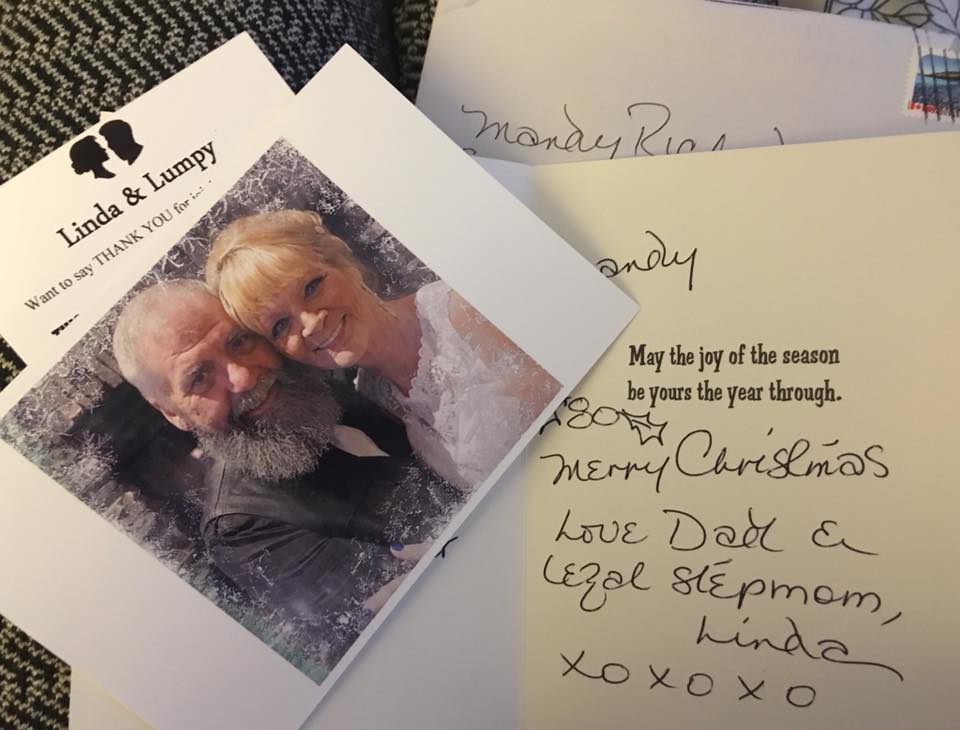 Linda & Lumpy
Want to say THANK YOU for
Mandy
andy
May the joy of the season
be yours the year through.
Merry Christmas
Love Dad &
Legal Stepmom,
Linda
XOXOXO